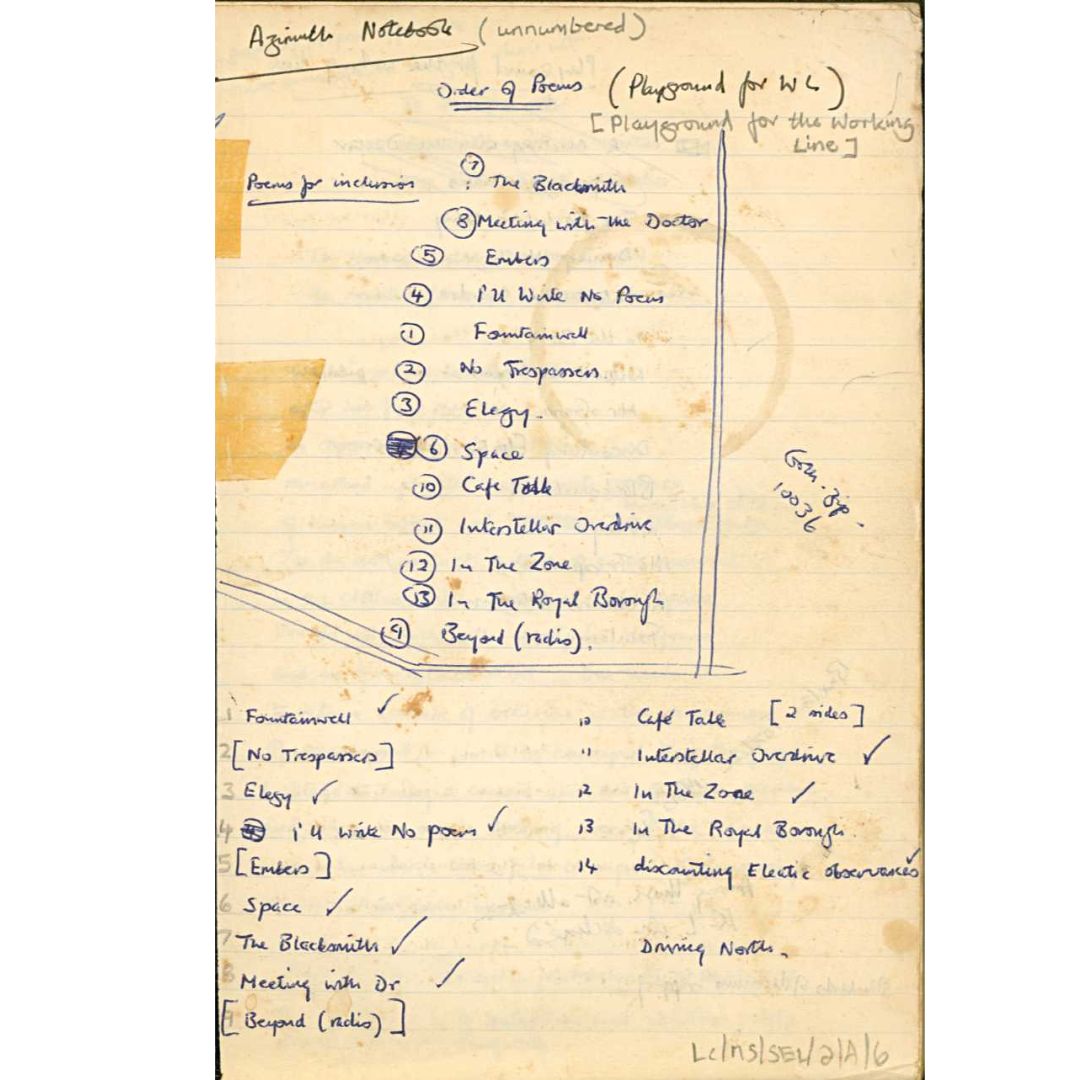 Azimuth Notebook (unnumbered)
Order of Poems (Playground for WL)
[Playground for the Working
Line]
Poems for inclusion
7 The Blacksmith
8 Meeting with the Doctor
5 Embers
4 I'll Write No Poems
1 Fountainwell
2 No Trespassers
3 Elegy.
6 Space
10 Cafe Talk
11 Interstellar Overdrive
12 In The Zone
13 In The Royal Borough
9 Beyond (radio).
10036
1 Fountainwell ✓
2 [No Trespassers]
3 Elegy ✓
4 I'll write No poems ✓
5 [Embers]
6 Space ✓
7 The Blacksmith ✓
8 Meeting with Dr ✓
9 [Beyond (radio)]
10 Café Talk [2 sides]
11 Interstellar Overdrive ✓
12 In The Zone ✓
13 In The Royal Borough.
14 discounting Eleatic observances ✓
Driving North.
LC/MS/SEL/2/A/6